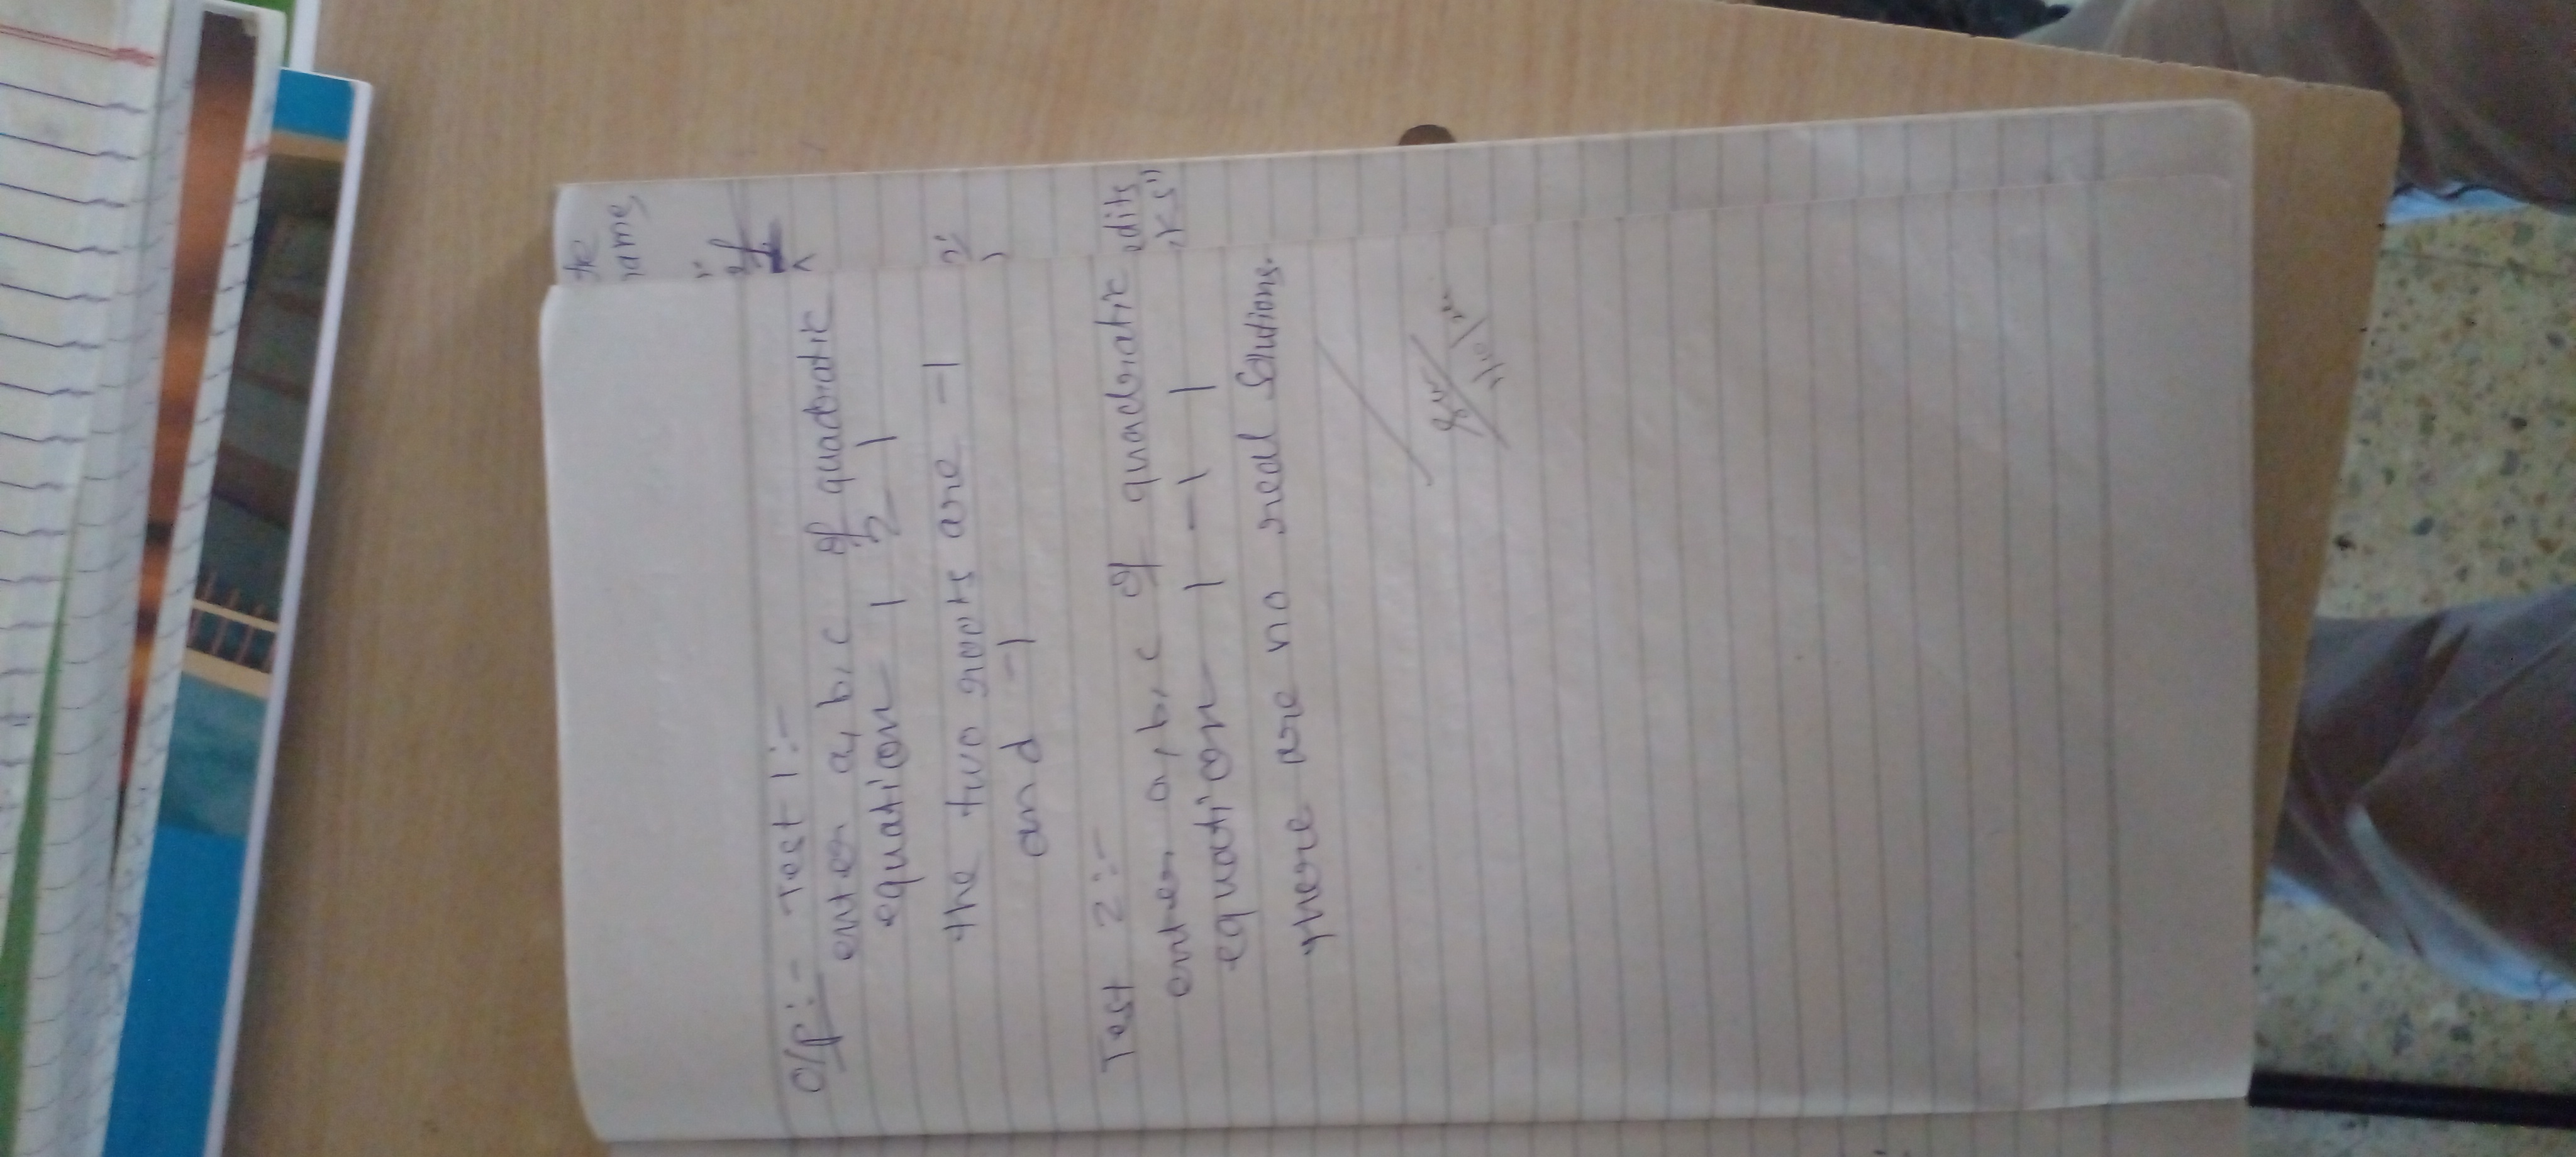 O/P :- Test 1 :-
enter a, b, c of quadratic
equation 1 2 1
the two roots are -1
and -1
Test 2 :-
enter a, b, c of quadratic
equation 1 -1 1
there are no real solutions.
edits